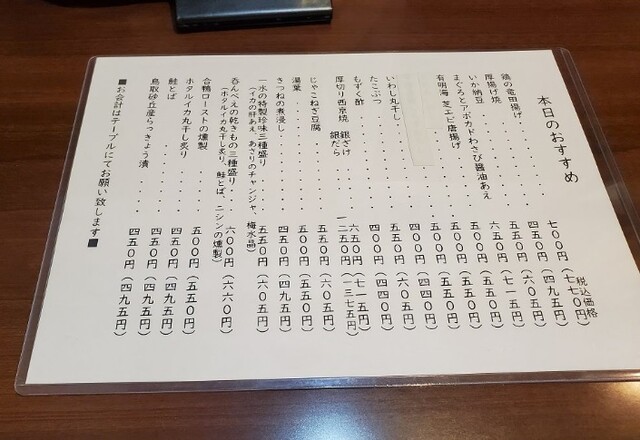 本日のおすすめ
税込価格
鶏の竜田揚げ・・・・・・・七〇〇円(七七〇円)
厚揚げ焼・・・・・・・四五〇円(四九五円)
いか納豆・・・・・・・五五〇円(六〇五円)
まぐろとアボカドわさび醤油あえ・・六五〇円(七一五円)
有明海 芝エビ唐揚げ・・・・五〇〇円(五五〇円)
五〇〇円(五五〇円)
いわし丸干し・・・・・・・四〇〇円(四四〇円)
たこぶつ・・・・・・・五五〇円(六〇五円)
もずく酢・・・・・・・四〇〇円(四四〇円)
厚切り西京焼 銀ざけ・・・・六五〇円(七一五円)
銀だら・・・・一二五〇円(一三七五円)
じゃこねぎ豆腐・・・・・・五五〇円(六〇五円)
湯葉・・・・・・・五〇〇円(五五〇円)
きつねの煮浸し・・・・・・四五〇円(四九五円)
一水の特製珍味三種盛り・・・・五五〇円(六〇五円)
(イカの肝あえ、あさりのチャンジャ、梅水晶)
呑んべえの乾きもの三種盛り・・・六〇〇円(六六〇円)
(ホタルイカ丸干し炙り、鮭とば、ニシンの燻製)
合鴨ローストの燻製・・・・・五〇〇円(五五〇円)
ホタルイカ丸干し炙り・・・・四五〇円(四九五円)
鮭とば・・・・・・・四五〇円(四九五円)
鳥取砂丘産らっきょう漬・・・四五〇円(四九五円)
■お会計はテーブルにてお願い致します■